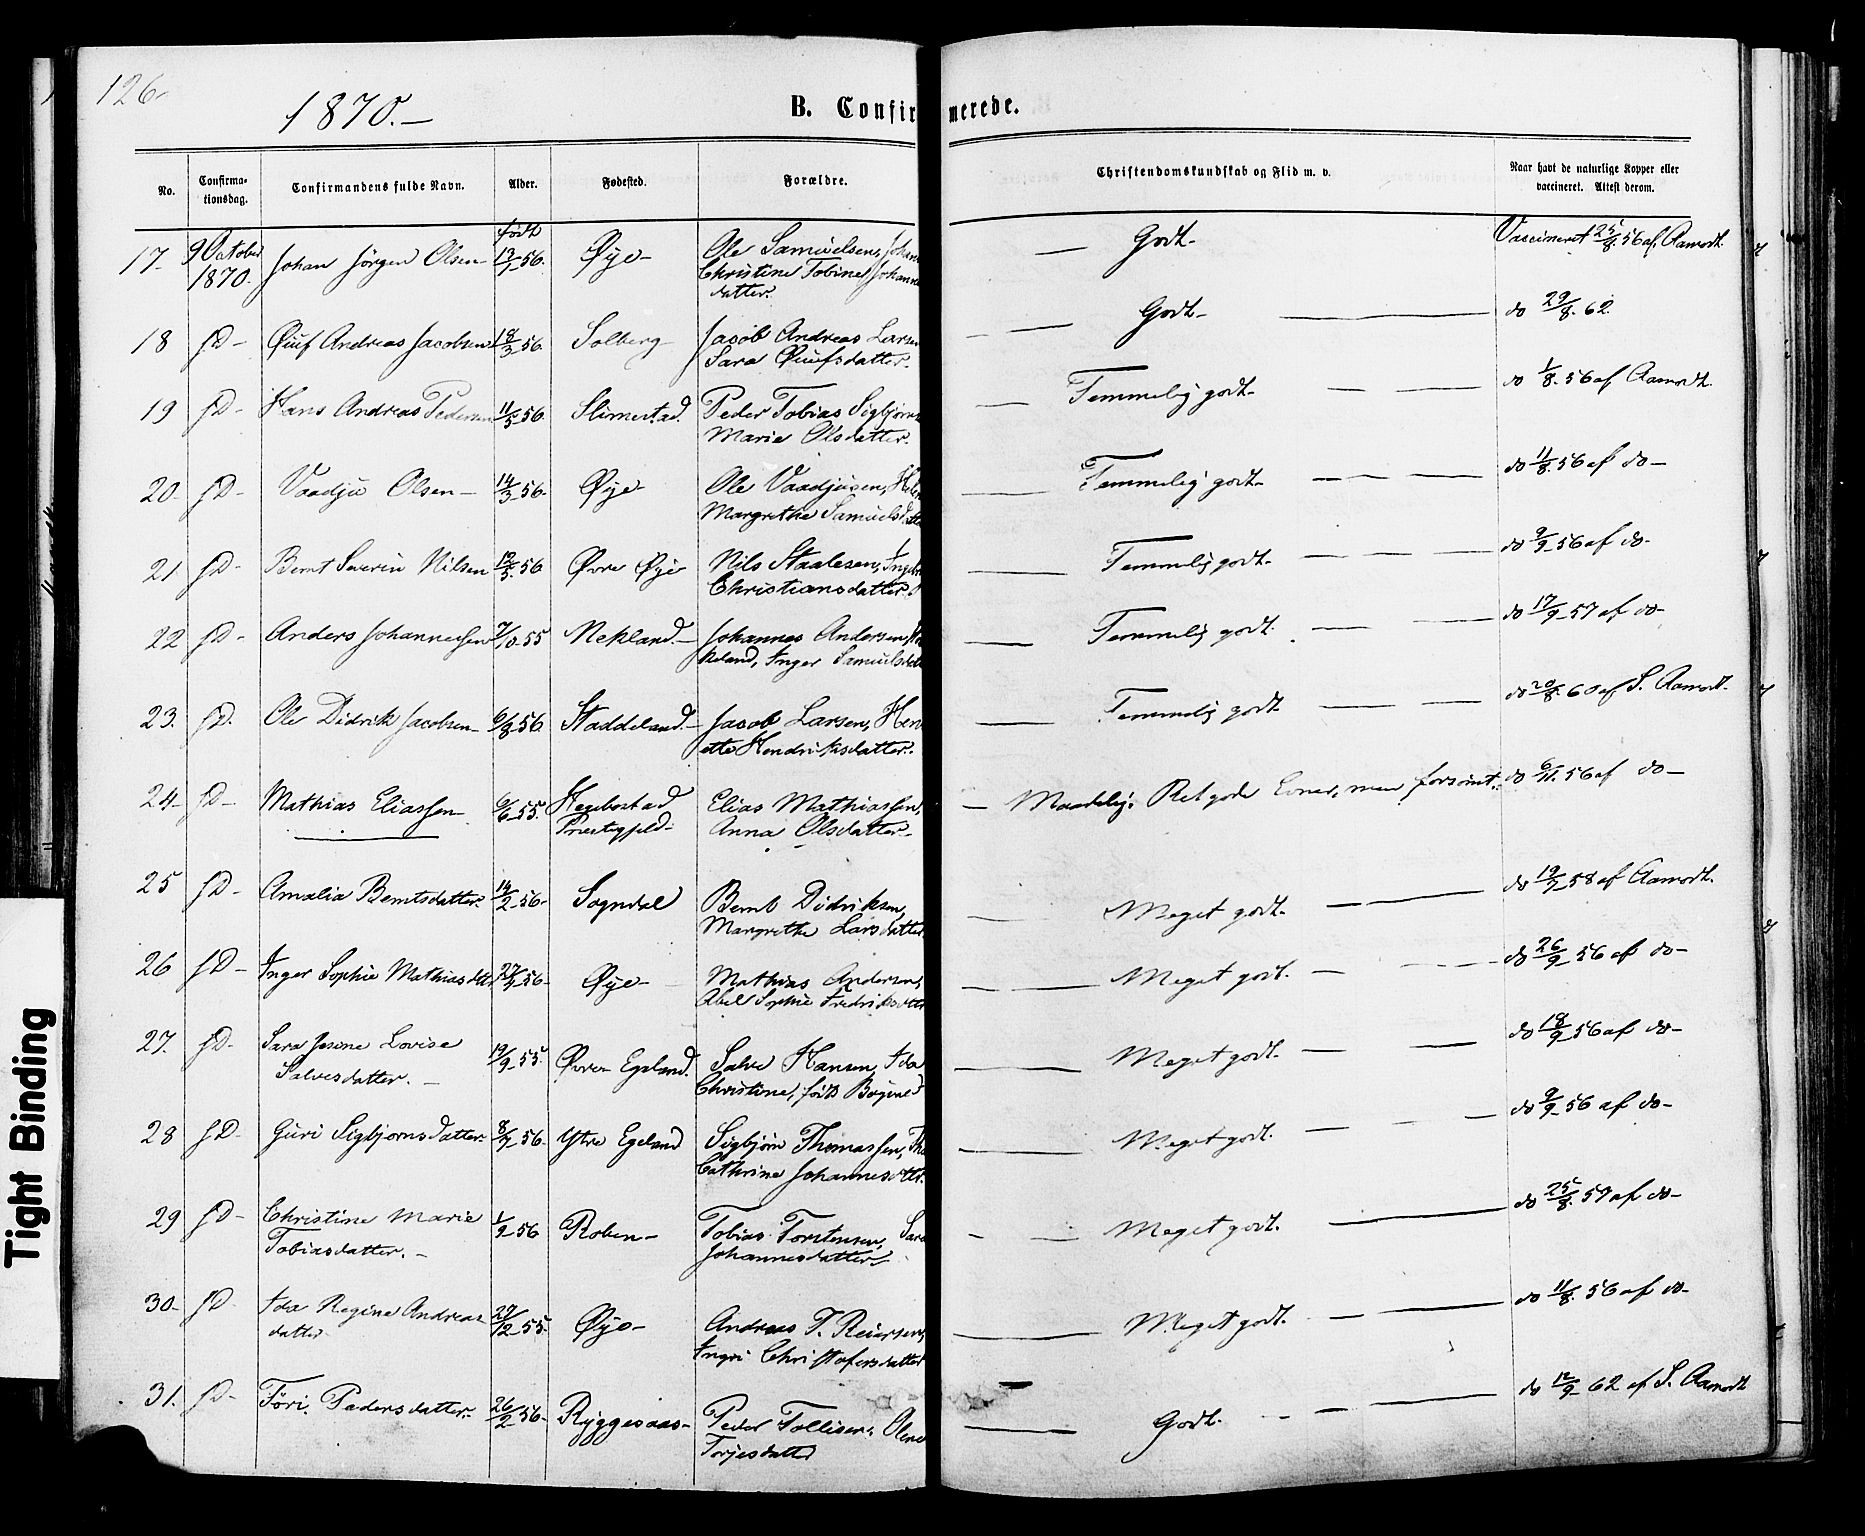 126-
1870.-
B. Confirmerede.
No.
Confirma-
tionsdag.
Confirmandens fulde Navn.
Alder.
Fødested.
Forældre.
Christendomskundskab og Flid m. v.
Naar havt de naturlige Kopper eller
vaccineret. Attest derom.
17- 9 October 1870. Johan Jörgen Olsen- født 13/1 56. Øye- Ole Samuelsen, Johan
Christine Tobine Johanne
datter.
Godt- Vaccineret 25/8. 56 af Aamodt.
18 sD- Øuf Andreas Jacobsen 18/3 56. Solberg- Jacob Andreas Larsen
Sara Øuufsdatter.
Godt- do 29/8. 62.
19 sD- Hans Andreas Pedersen 11/5 56. Slimestad. Peder Tobias Sigbjørn
Marie Olsdatter.
Temmelig godt- do 1/8. 56 af Aamodt.
20- sD- Vaadju Olsen- 14/3 56- Øye- Ole Vaadjusen, Helen
Margrethe Samuelsdatte
Temmelig godt- do 11/8. 56 af do-
21 sD- Bernt Severin Nilsen 12/5. 56 Øvre Øye Nils Staalesen, Inge
Christiansdatter.
Temmelig godt- do 9/9 56 af do-
22 sD- Anders Johannessen 7/10 55 Mekland- Johannes Andersen
keland, Inger Samuels
Temmelig godt. do 17/9 57 af do-
23. sD. Ole Didrik Jacobsen- 6/8 56. Staddeland- Jacob Larsen, Hen
ette Hendriksdatter.
Temmelig godt do 20/8. 60 af S. Aamodt.
24- sD- Mathias Eliassen- 6/6 55. Hegebostad
Præstegjeld- Elias Mathiassen,
Anna Olsdatter-
Maadelig. Ret gode Evner, men forsømt. do 6/11. 56 af do-
25 sD- Amalia Berntsdatter. 14/2 56- Sogndal Bernt Didriksen,
Margrethe Larsdatter
Meget godt- do 19/7 58 af Aamodt.
26 sD- Inger Sophie Mathiasdtt 27/7 56- Øye- Mathias Andersen,
Abel Sophie Fredriksdttr
Meget godt. do 26/9 56 af do-
27. sD- Sara Josine Lovise
Salvesdatter.- 19/9 55. Øvre Egeland. Salve Hansen, Ida
Christine, født Bøgine
Meget godt- do 18/9 56 af do-
28 sD- Guri Sigbjørnsdatter- 8/7 56. Ytre Egeland Sigbjørn Thomassen, Th
Cathrine Johannesdttr.
Meget godt. do 9/9 56 af do-
29 sD- Christine Marie
Tobiasdatter.- 1/9 56 Roben- Tobias Torstensen, Sara
Johannesdatter
Meget godt. do 25/8. 57 af do-
30- sD- Ida Regine Andreas
datter 27/12 55. Øye- Andreas T. Reiersen,
Ingri Christofersdatter
Meget godt. do 11/8. 56 af do-
31. sD- Töri. Pedersdatter. 26/2 56- Ryggesaas- Peder Tollisen. Olene
Torjesdatter
Godt- do 12/9 62 af S. Aamodt
Tight Binding